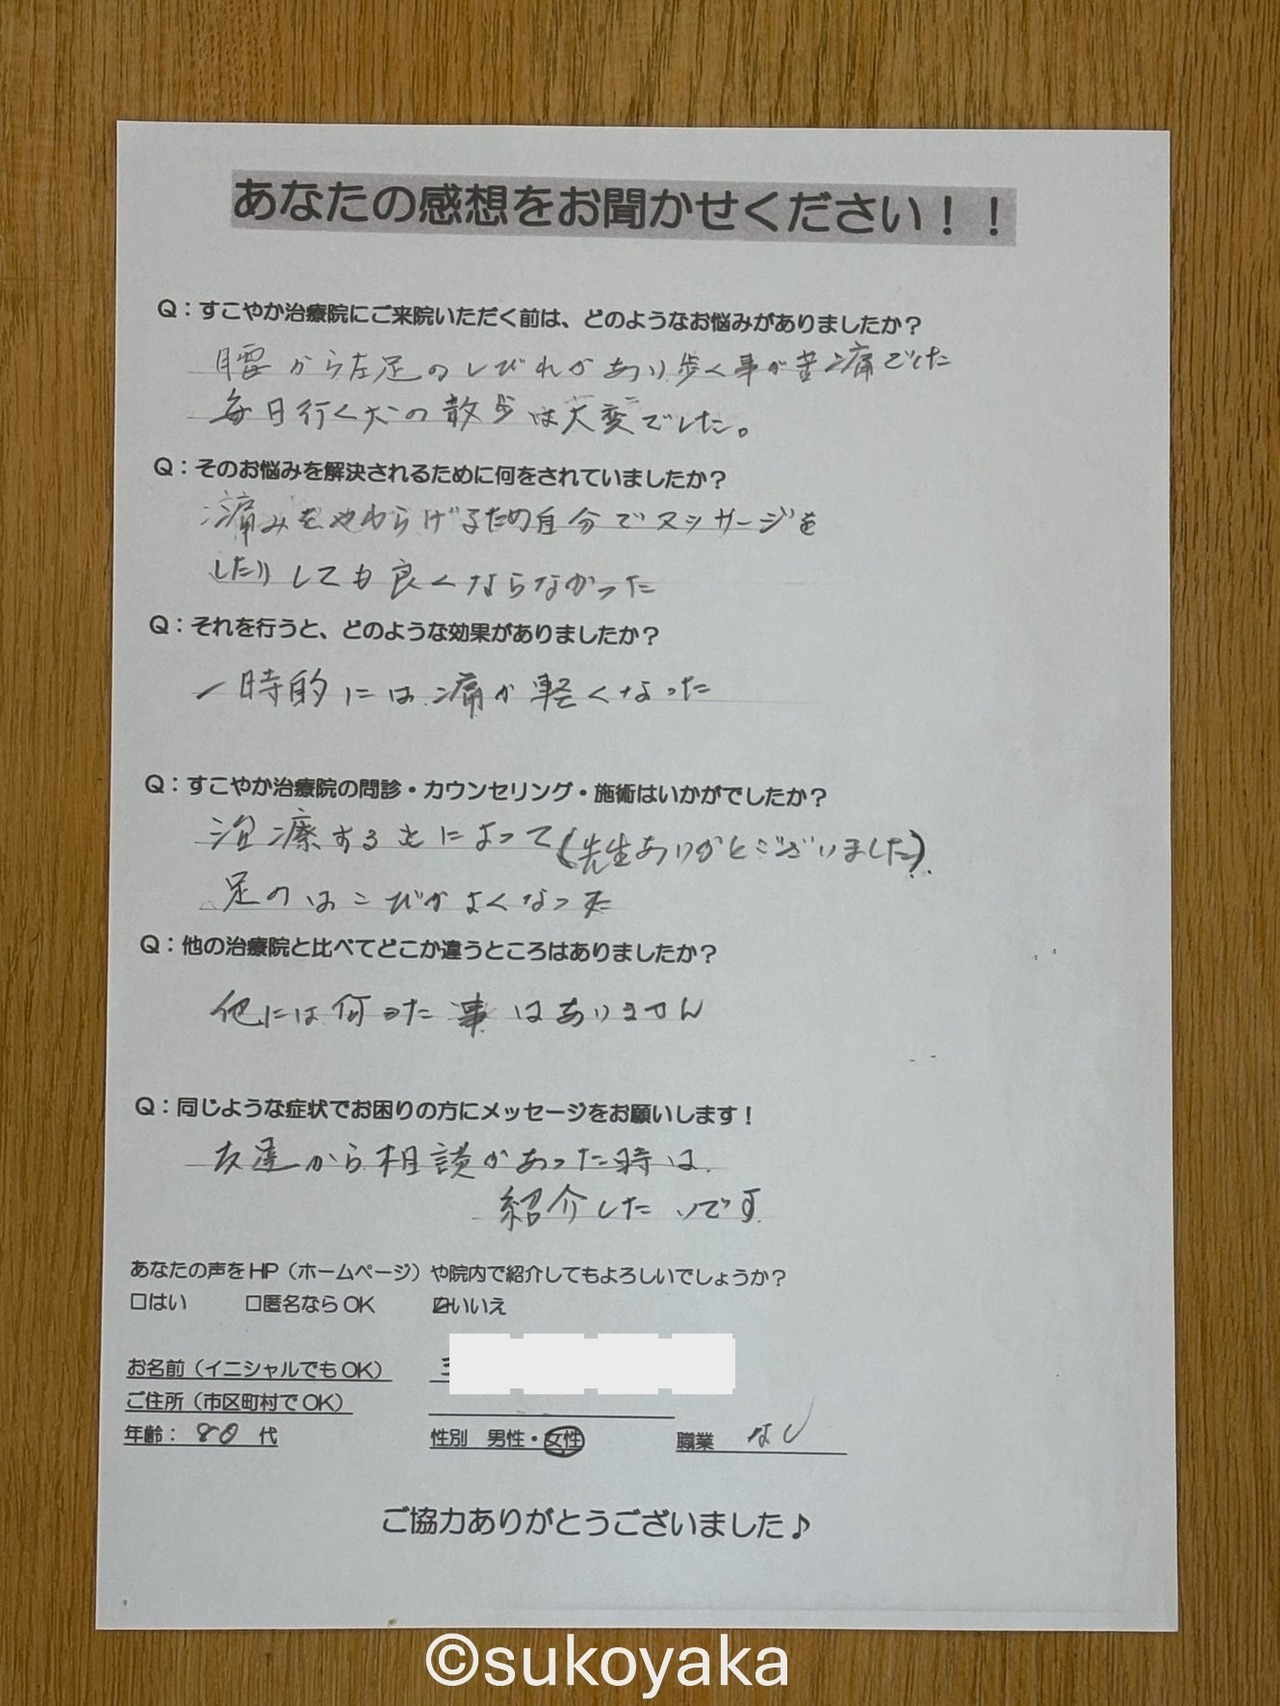 あなたの感想をお聞かせください！！
Q：すこやか治療院にご来院いただく前は、どのようなお悩みがありましたか？
腰から左足のしびれがあり歩く事が苦痛でした
毎日行く犬の散歩は大変でした。
Q：そのお悩みを解決されるために何をされていましたか？
痛みをやわらげるため自分でマッサージを
したりしても良くならなかった
Q：それを行うと、どのような効果がありましたか？
一時的には痛が軽くなった
Q：すこやか治療院の問診・カウンセリング・施術はいかがでしたか？
治療することによって(先生ありがとございました)
足のはこびがよくなった
Q：他の治療院と比べてどこか違うところはありましたか？
他には行った事はありません
Q：同じような症状でお困りの方にメッセージをお願いします！
友達から相談があった時は
紹介したいです
あなたの声をHP（ホームページ）や院内で紹介してもよろしいでしょうか？
□はい □匿名ならOK ☑いいえ
お名前（イニシャルでもOK）
ご住所（市区町村でOK）
年齢：80代 性別 男性・女性 職業 なし
ご協力ありがとうございました♪
©sukoyaka